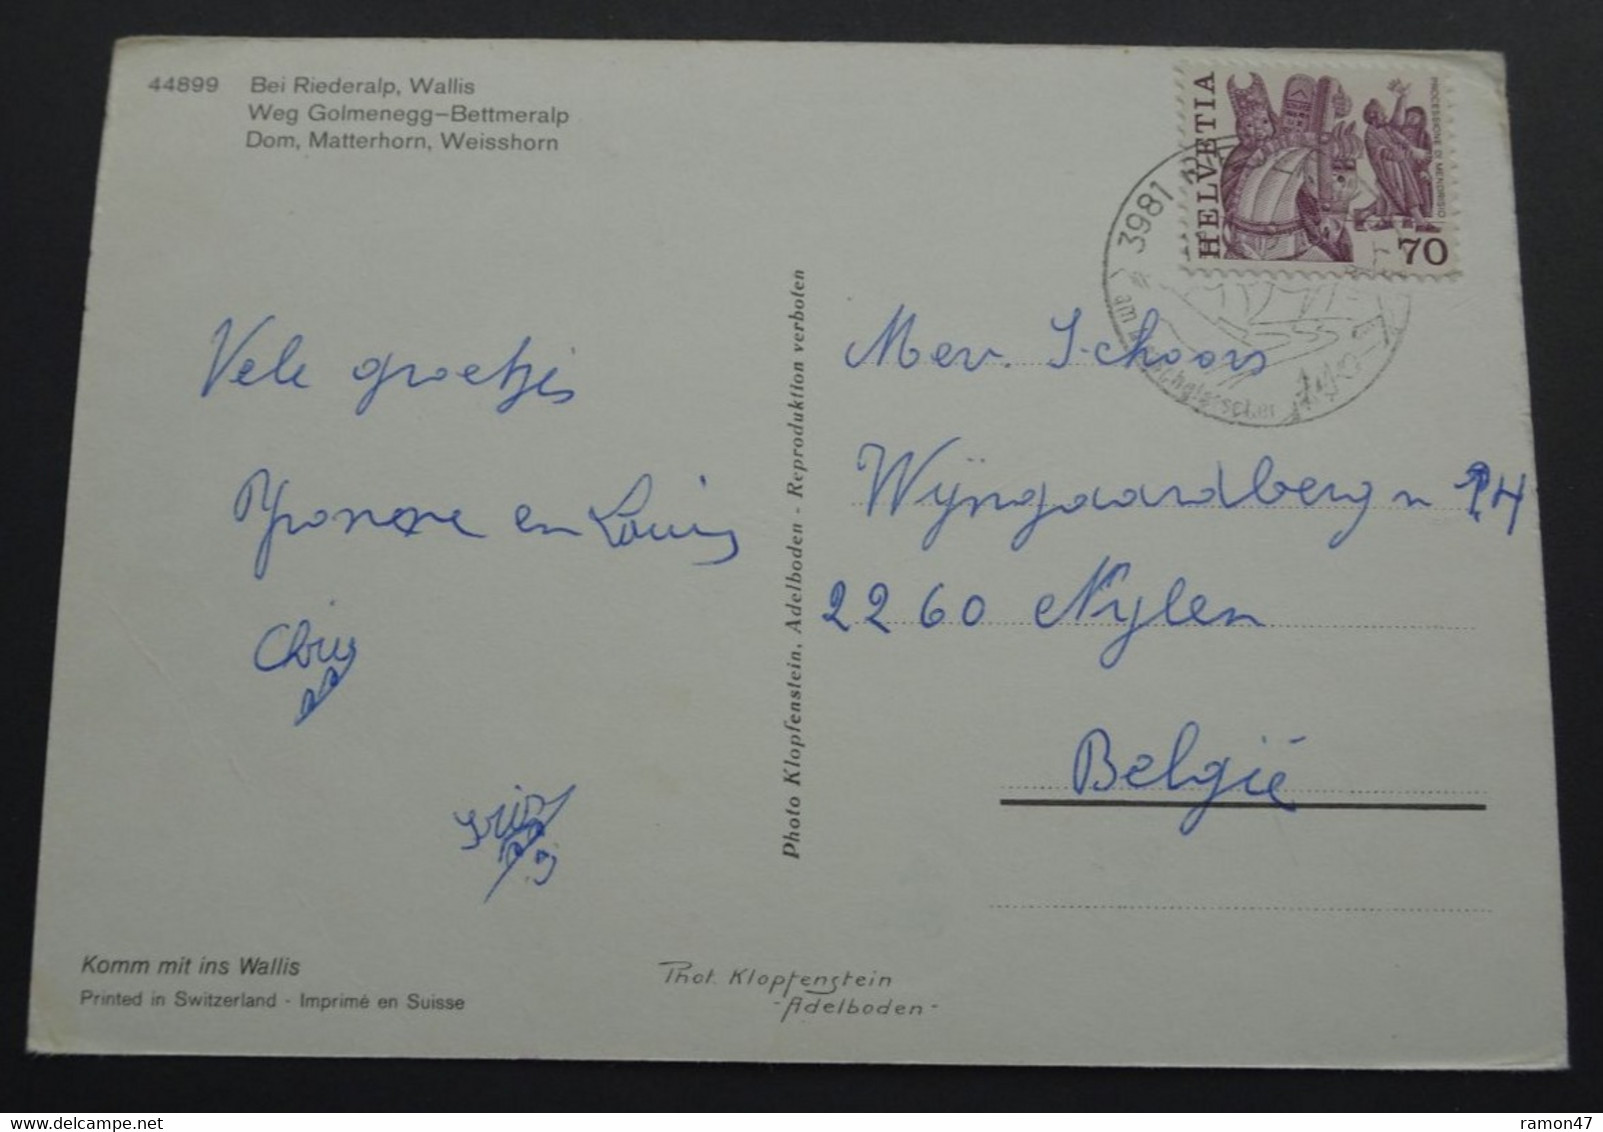 44899 Bei Riederalp, Wallis
Weg Golmenegg-Bettmeralp
Dom, Matterhorn, Weisshorn
HELVETIA
PROCESSIONE DI MENDRISIO
70
3981
am
Vele groetjes
Yvonne en Louis
Chris
Photo Klopfenstein, Adelboden - Reproduktion verboten
Mev. Schoors
Wijngaardberg n
2260 Nylen
België
Komm mit ins Wallis
Printed in Switzerland - Imprimé en Suisse
Phot. Klopfenstein
-Adelboden-
ramon47